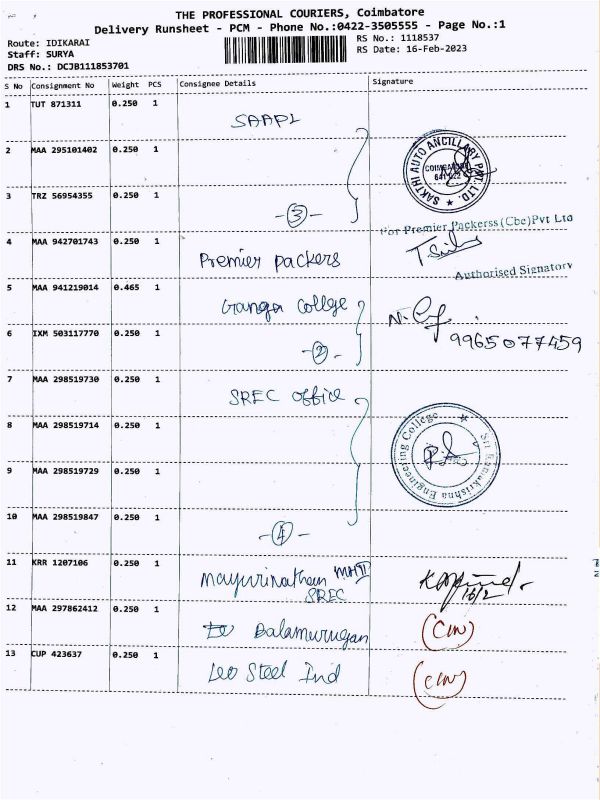 THE PROFESSIONAL COURIERS, Coimbatore
Delivery Runsheet - PCM - Phone No.:0422-3505555 - Page No.:1
Route: IDIKARAI
RS No.: 1118537
Staff: SURYA
RS Date: 16-Feb-2023
DRS No.: DCJB111853701
S No Consignment No Weight PCS Consignee Details Signature
1 TUT 871311 0.250 1
SAAPL
2 MAA 295101402 0.250 1
SAKTHI AUTO ANCILLARY PVT. LTD.
COIMBATORE
3 TRZ 56954355 0.250 1
-3-
For Premier Packerss (Cbe) Pvt Ltd
4 MAA 942701743 0.250 1
Premier packers
Authorised Signatory
5 MAA 941219014 0.465 1
Ganga College
6 IXM 503117770 0.250 1
9965077459
-2-
7 MAA 298519730 0.250 1
SREC office
8 MAA 298519714 0.250 1
Sri Ramakrishna Engineering College
9 MAA 298519729 0.250 1
10 MAA 298519847 0.250 1
-4-
11 KRR 1207106 0.250 1
SREC
16/2
12 MAA 297862412 0.250 1
Balamurugan
13 CUP 423637 0.250 1
Leo Steel Ind